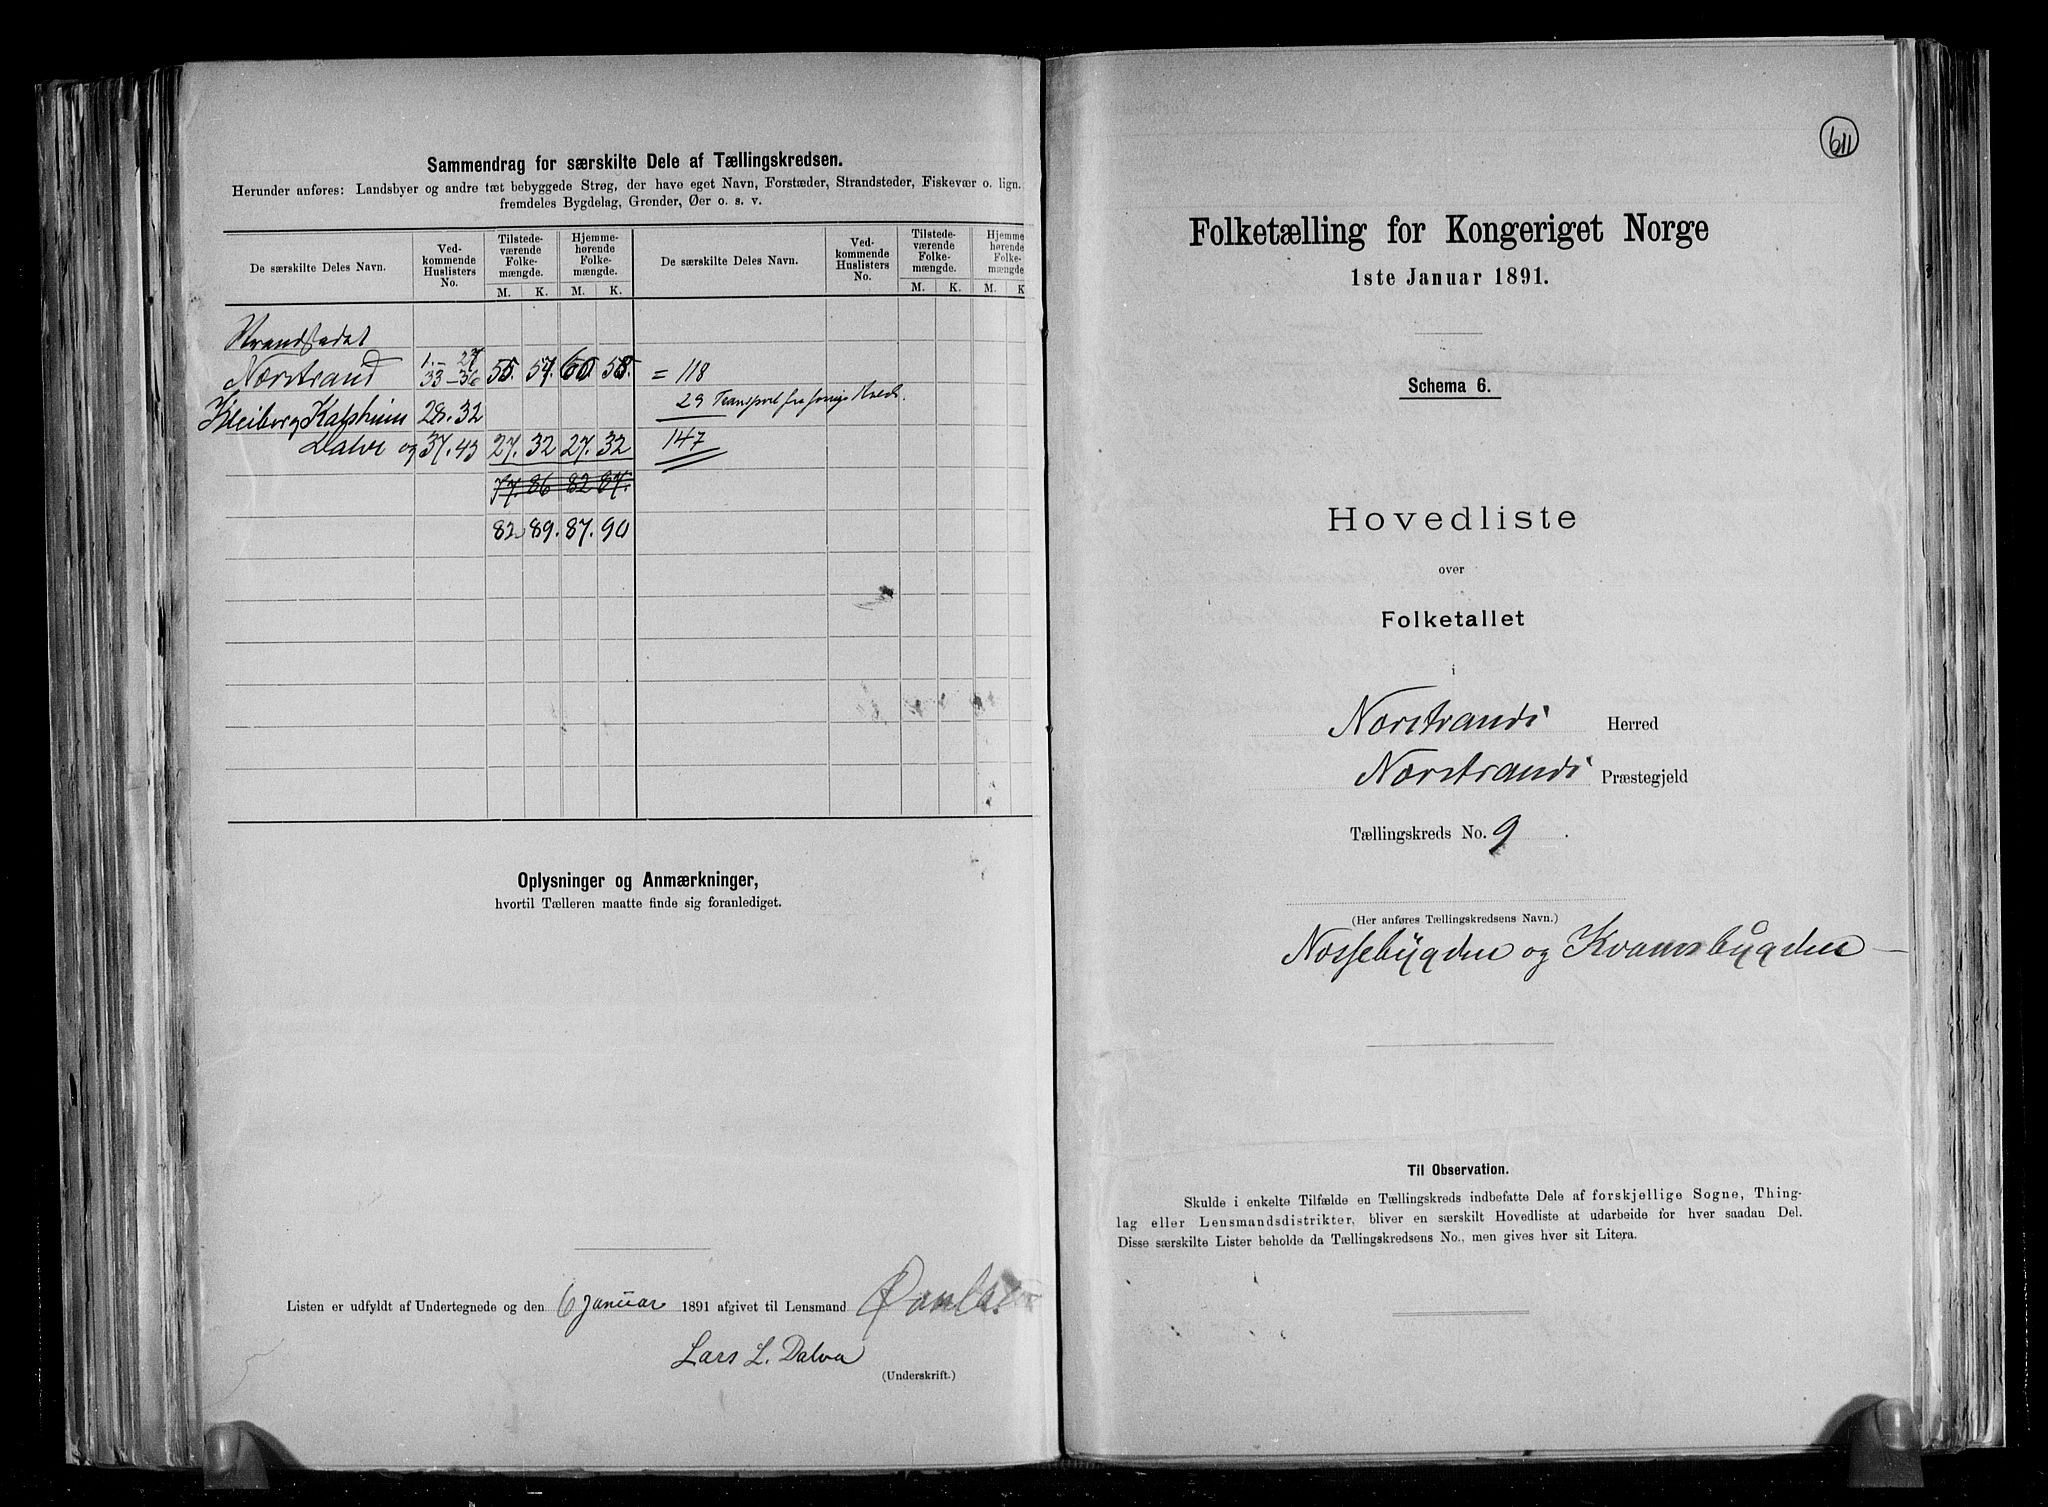 Sammendrag for særskilte Dele af Tællingskredsen.
Herunder anføres: Landsbyer og andre tæt bebyggede Strøg, der have eget Navn, Forstæder, Strandsteder, Fiskevær o. lign.
fremdeles Bygdelag, Grender, Øer o. s. v.
De særskilte Deles Navn.
Ved-
kommende
Huslisters
No.
Tilstede-
værende
Folke-
mængde.
Hjemme-
hørende
Folke-
mængde.
De særskilte Deles Navn.
Ved-
kommende
Huslisters
No.
Tilstede-
værende
Folke-
mængde.
Hjemme
hørende
Folke-
mængde
M. K. M. K. M. K. M. K
Strandstedet
Nærstrand 1.–27 33–36 55. 57. 60. 58. = 118
28. 32 29 Transport fra forrige Kreds.
Dalve og 37.43 27. 32 27. 32 147
77. 86 82 87.
82. 89. 87. 90
Oplysninger og Anmærkninger,
hvortil Tælleren maatte finde sig foranlediget.
Listen er udfyldt af Undertegnede og den 6 Januar 1891 afgivet til Lensmand
Lars L. Dalva
(Underskrift.)
611
Folketælling for Kongeriget Norge
1ste Januar 1891.
Schema 6.
Hovedliste
over
Folketallet
i
Nærstrands Herred
Nærstrands Præstegjeld
Tællingskreds No. 9.
(Her anføres Tællingskredsens Navn.)
Næssebygden og Kvamsbygden
Til Observation.
Skulde i enkelte Tilfælde en Tællingskreds indbefatte Dele af forskjellige Sogne, Thing-
lag eller Lensmandsdistrikter, bliver en særskilt Hovedliste at udarbeide for hver saadan Del.
Disse særskilte Lister beholde da Tællingskredsens No., men gives hver sit Litera.